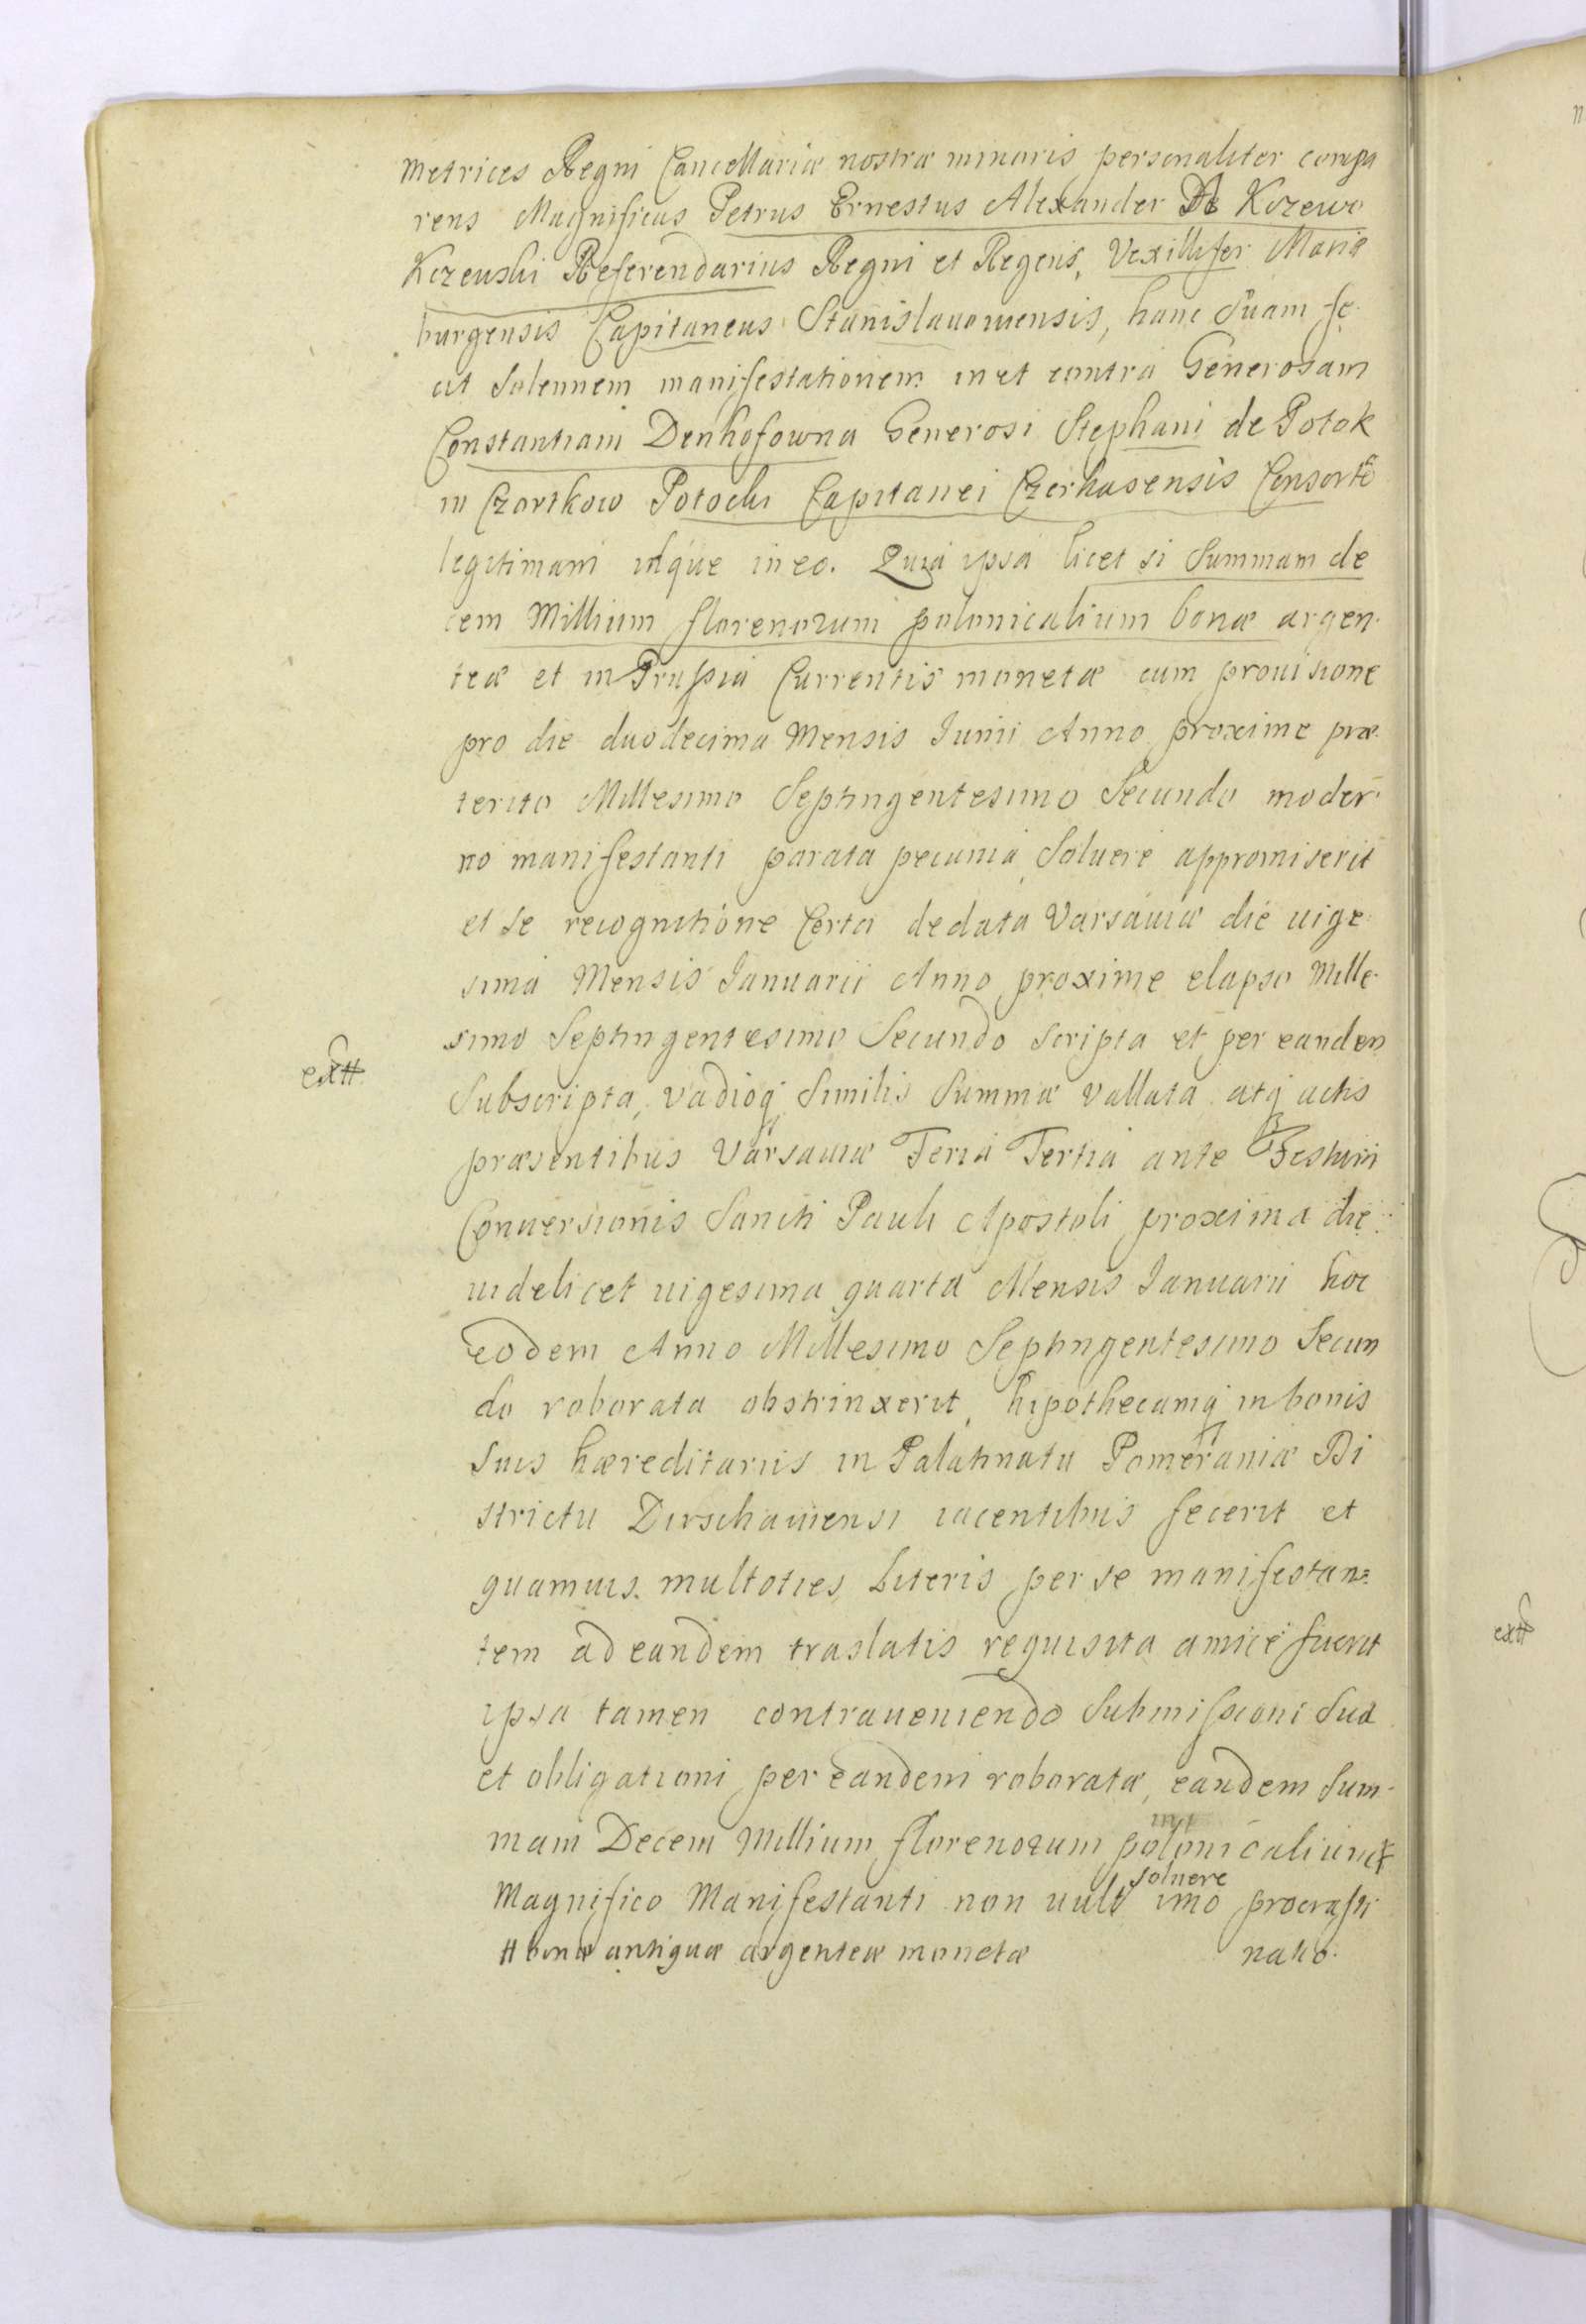 Metrices Regni Cancellariæ nostræ minoris personaliter compa
rens Magnificus Petrus Ernestus Alexander De Kczewo
Kczewski Referendarius Regni et Regens, Vexillifer Mariæ
burgensis Capitaneus Stanislauowensis, hanc Suam fe
cit Solennem manifestationem in et contra Generosam
Constantiam Denhofowna Generosi Stephani de Potok
in Czortkow Potocki Capitanei Czerkasensis Consorte
legitimam idque in eo. Quia ipsa licet si Summam de
cem Millium florenorum polonicalium bonæ argen-
teæ et in Prussia Currentis monetæ cum prouisione
pro die duodecima Mensis Junii Anno proxime præ-
terito Millesimo Septingentesimo Secundo moder-
no manifestanti parata pecunia Soluere appromiserit
et se recognitione Certa de data Varsauiæ die uige-
sima Mensis Januarii Anno proxime elapso Mille-
simo Septingentesimo Secundo scripta et per eandem
extt
Subscripta, vadioq Similis Summæ vallata atq actis
præsentibus Varsauiæ Feria Tertia ante Festum
Conuersionis Sancti Pauli Apostoli proxima die
uidelicet uigesima quarta Mensis Januarii hoc
eodem Anno Millesimo Septingentesimo Secun
do roborata obstrinxerit, hipothecamq in bonis
Suis hæreditariis in Palatinatu Pomeraniæ Di
strictu Dirschauiensi iacentibus fecerit et
quamuis multoties Literis per se manifestan=
tem ad eandem traslatis requisita amice fuerit
ipsa tamen contraueniendo Submissioni Suæ
et obligationi per eandem roboratæ, eandem Sum-
mam Decem Millium florenorum polonicalium #
soluere
Magnifico Manifestanti non uult imo procrasti
# bonæ antiquæ argenteæ monetæ
natio.
extt